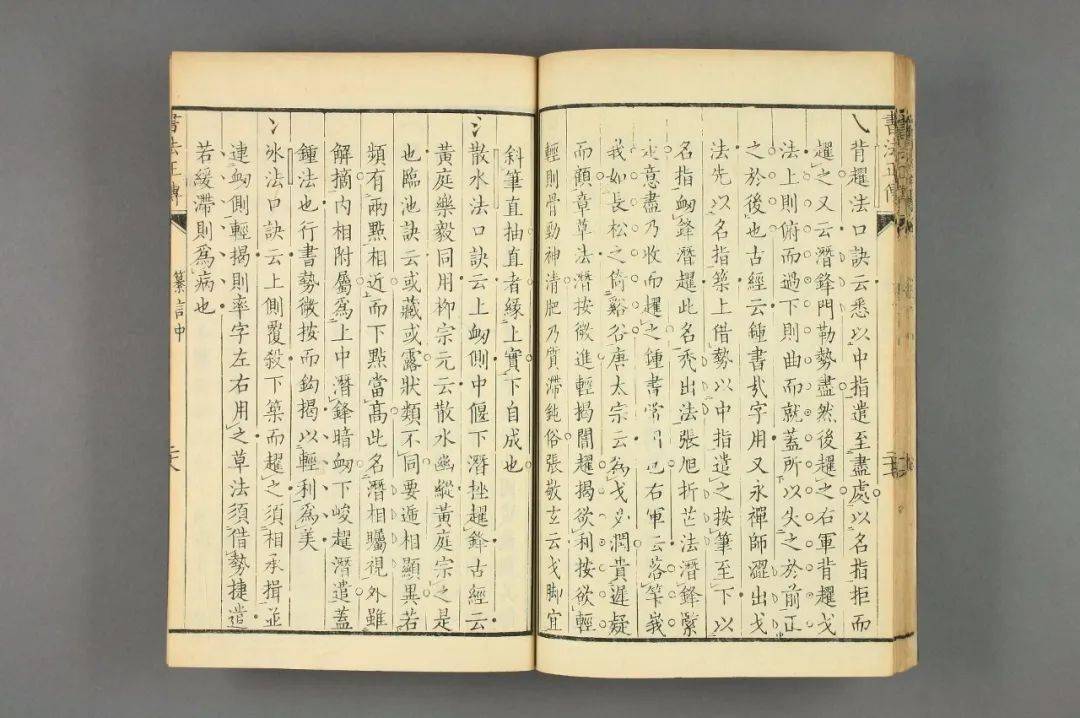 書法正傳
㇏背趯法口訣云悉以中指遣至盡處以名指拒而
趯之又云潛鋒門勒勢盡然後趯之右軍背趯戈
法上則俯而過下則曲而就蓋所以失之於前正
之於後也古經云鍾書哉字用又永禪師澀出戈
法先以名指築上借勢以中指遣之按筆至下以
名指衄鋒潛趯此名禿出法張旭折芒法潛鋒緊
走意盡乃收而趯之鍾書常用也右軍云落竿我
我如長松之倚谿谷唐太宗云為戈必潤貴遲疑
而顧章草法潛按微進輕揭闇趯揭欲利按欲輕
輕則骨勁神清肥乃質滯鈍俗張敬玄云戈脚宜
斜筆直抽直者緣上實下自成也
氵散水法口訣云上衄側中偃下潛挫趯鋒古經云
黃庭樂毅同用柳宗元云散水幽縱黃庭宗之是
也臨池訣云或藏或露狀類不同要遞相顯異若
頻有兩點相近而下點當高此名潛相矚視外雖
解摘內相附屬爲上中潛鋒暗衄下峻趯潛遣蓋
鍾法也行書勢微按而鈎揭以輕利爲美
冫冰法口訣云上側覆殺下築而趯之須相承揖並
連衄側輕揭則率字左右用之草法須借勢捷遣
若緩滯則爲病也
書法正傳
纂言中